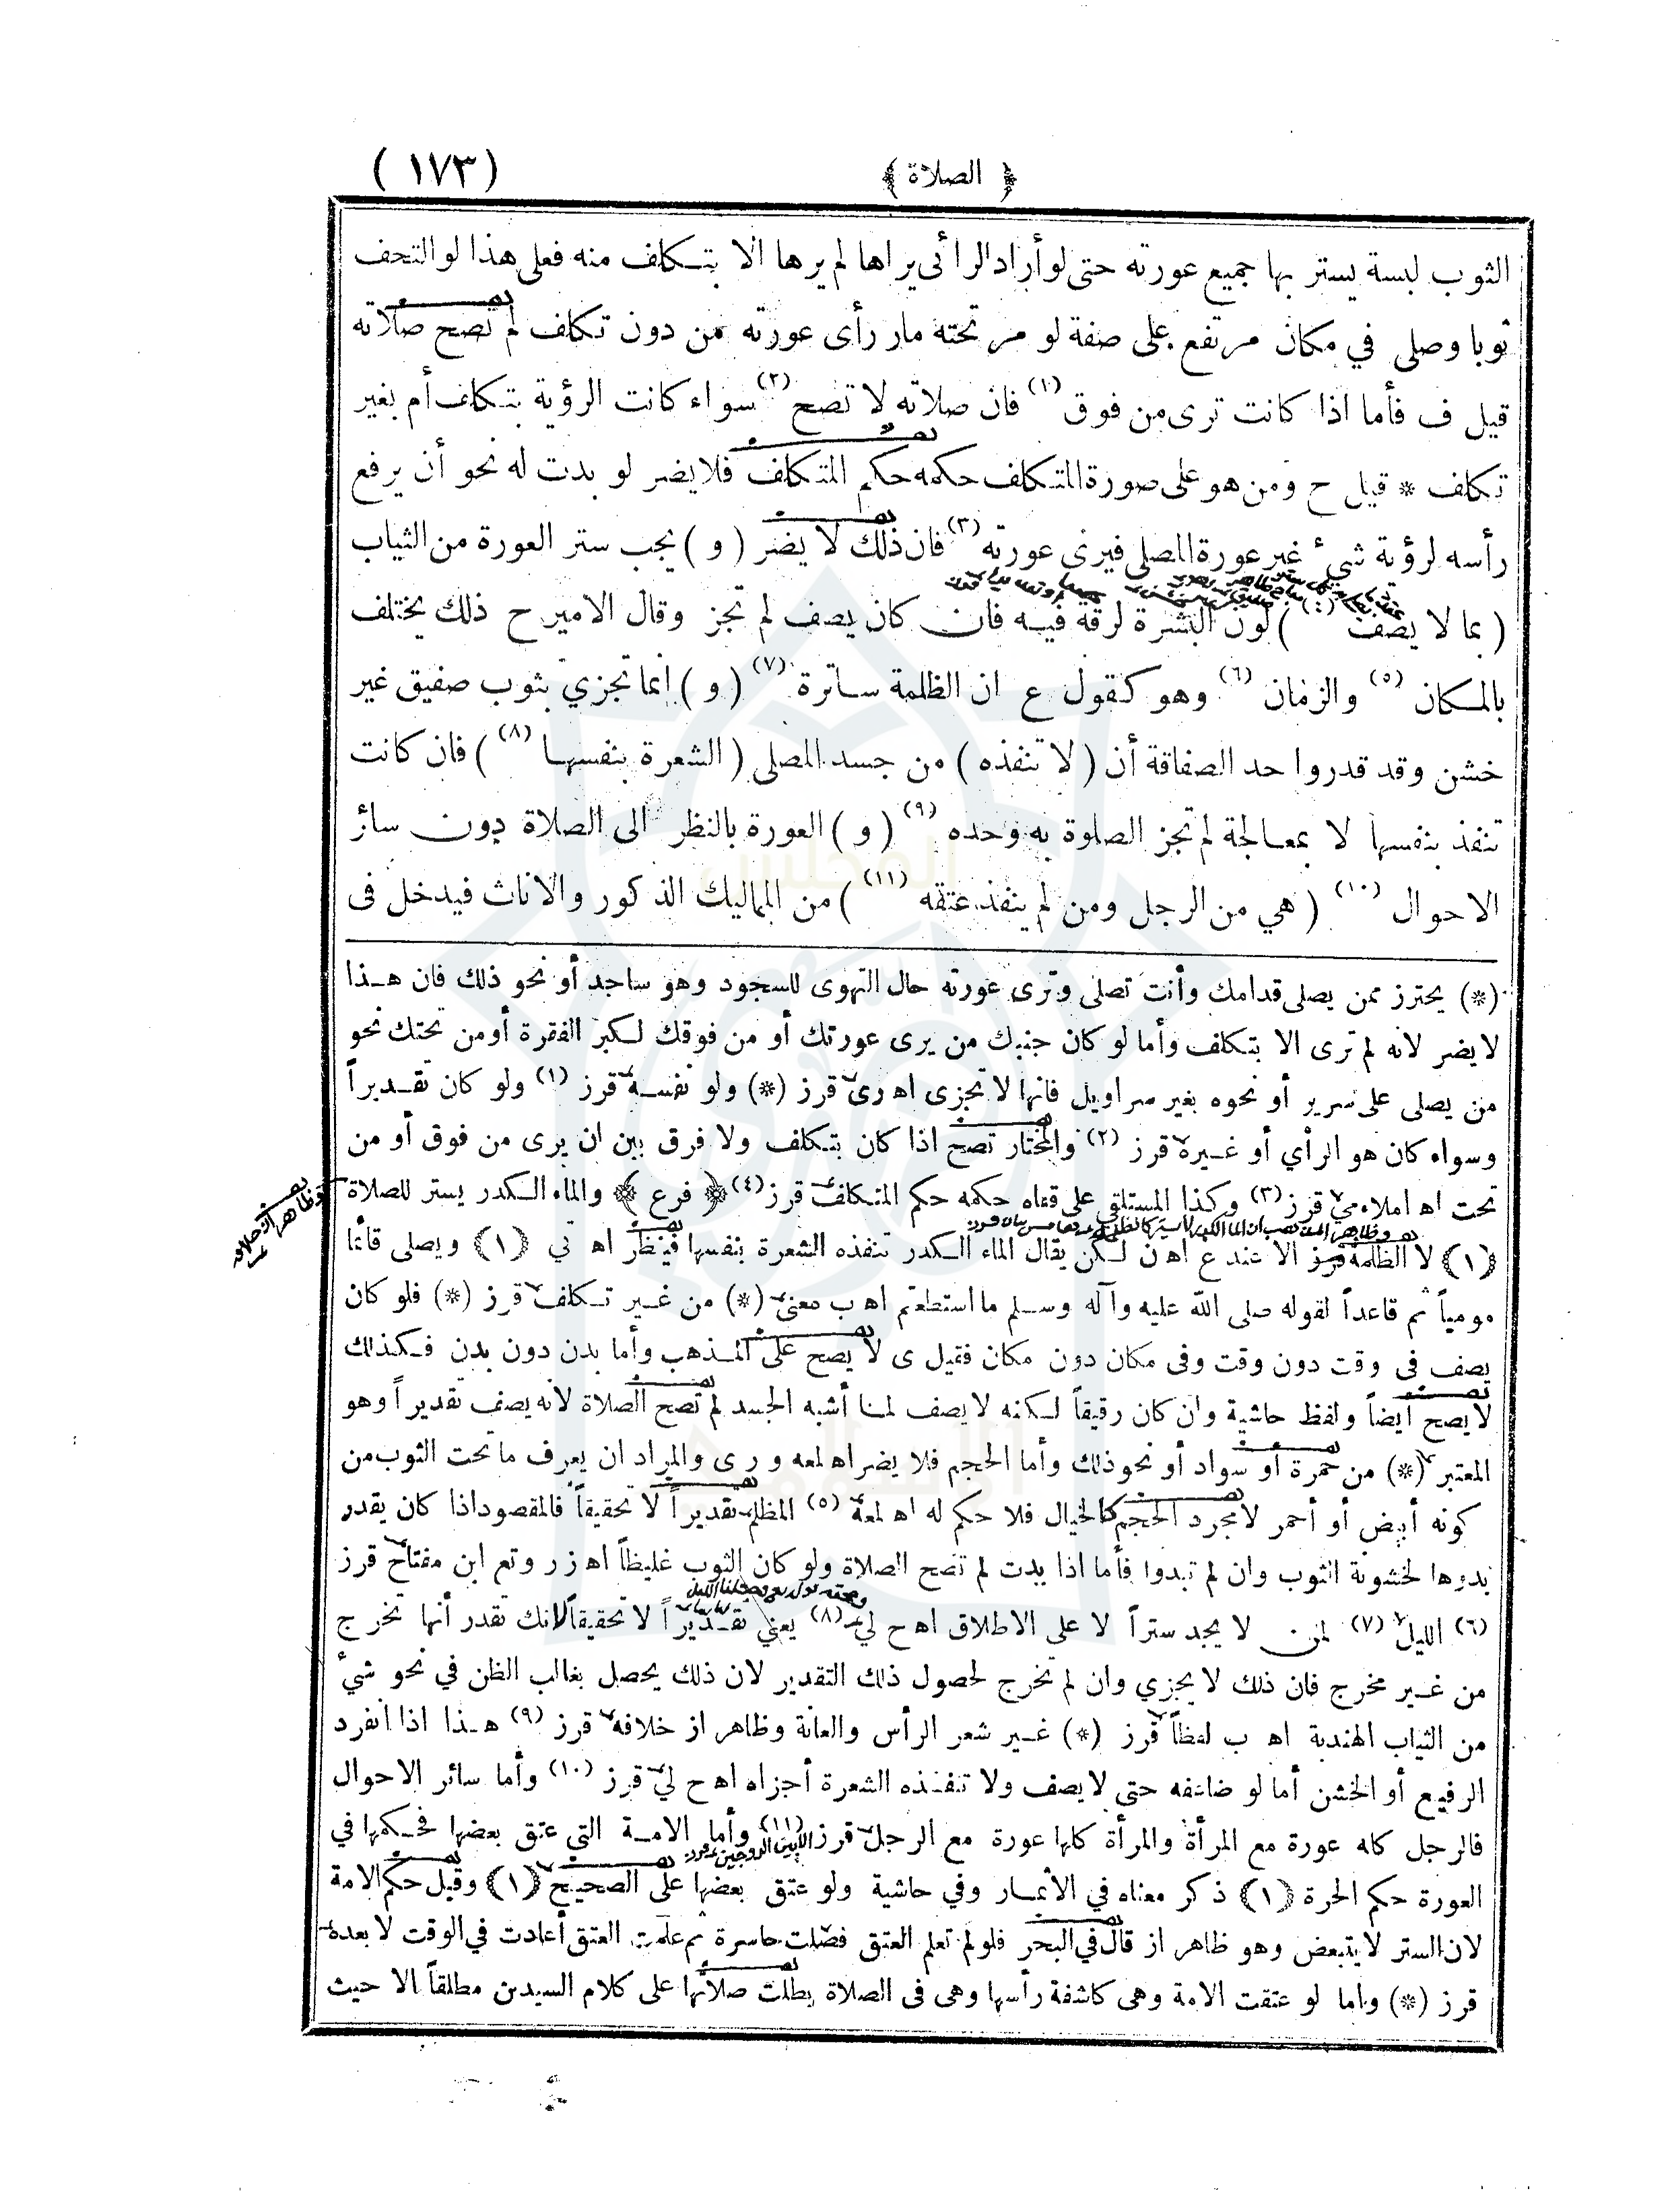 ﴿ الصلاة ﴾ (١٧٣)
الثوب لبسة يستر بها جميع عورته حتى لو أراد الرأئى يراها لم يرها الا بتكلف منه فعلى هذا لو التحف
ثوبا وصلى في مكان مرتفع على صفة لو مر تحته مار رأى عورته من دون تكلف لم تصح صلاته
قيل ف فأما اذا كانت ترى من فوق (١) فان صلاته لا تصح (٢) سواء كانت الرؤية بتكلف أم بغير
تكلف * قيل ح ومن هو على صورة المتكلف حكمه حكم المتكلف فلا يضر لو بدت له نحو أن يرفع
رأسه لرؤية شيء غير عورة المصلى فيرى عورته (٣) فان ذلك لا يضر ( و ) يجب ستر العورة من الثياب
( بما لا يصف (٤) ) لون البشرة لرقة فيه فان كان يصف لم تجز وقال الامير ح ذلك يختلف
بالمكان (٥) والزمان (٦) وهو كقول ع ان الظلمة ساترة (٧) ( و ) انما تجزي بثوب صفيق غير
خشن وقد قدروا حد الصفاقة أن ( لا تنفذه ) من جسد المصلى ( الشعرة بنفسها (٨) ) فان كانت
تنفذ بنفسها لا بمعالجة لم تجز الصلوة به وحده (٩) ( و ) العورة بالنظر الى الصلاة دون سائر
الاحوال (١٠) ( هي من الرجل ومن لم ينفذ عتقه (١١) ) من المماليك الذكور والاناث فيدخل فى
(*) يحترز ممن يصلى قدامك وأنت تصلى وترى عورته حال التهوى للسجود وهو ساجد أو نحو ذلك فان هذا
لا يضر لانه لم ترى الا بتكلف وأما لو كان جنبك من يرى عورتك أو من فوقك لكبر الفقرة أو من تحتك نحو
من يصلى على سرير أو نحوه بغير سراويل فانها لا تجزى اه رى قرز (*) ولو نفسه قرز (١) ولو كان تقديراً
وسواء كان هو الرأي أو غيره قرز (٢) والمختار تصح اذا كان بتكلف ولا فرق بين ان يرى من فوق أو من
تحت اه املاء مي قرز (٣) وكذا المستلقي على قفاه حكمه حكم المتكلف قرز (٤) ﴿ فرع ﴾ والماء الكدر يستر للصلاة
﴿١﴾ لا الظلمة قرز الا عند ع اه ن لكن يقال الماء الكدر تنفذه الشعرة بنفسها فينظر اه تي ﴿١﴾ ويصلى قائما
مومياً ثم قاعداً لقوله صلى الله عليه وآله وسلم ما استطعتم اه ب معنى (*) من غير تكلف قرز (*) فلو كان
يصف فى وقت دون وقت وفى مكان دون مكان فقيل ى لا يصح على المذهب وأما بدن دون بدن فكذلك
لا يصح أيضاً ولفظ حاشية وان كان رقيقاً لكنه لا يصف لما أشبه الجسد لم تصح الصلاة لانه يصف تقديراً وهو
المعتبر (*) من حمرة أو سواد أو نحو ذلك وأما الحجم فلا يضر اه لمعه و رى والمراد ان يعرف ما تحت الثوب من
كونه أبيض أو أحمر لا مجرد الحجم كالخيال فلا حكم له اه لمعة (٥) المظلم تقديراً لا تحقيقاً فالمقصود اذا كان يقدر
بدوها لخشونة الثوب وان لم تبدوا فأما اذا بدت لم تصح الصلاة ولو كان الثوب غليظاً اه زر وتع ابن مفتاح قرز
(٦) الليل (٧) لمن لا يجد ستراً لا على الاطلاق اه ح لي (٨) يعني تقديراً لا تحقيقاً لانك تقدر أنها تخرج
من غير مخرج فان ذلك لا يجزي وان لم تخرج لحصول ذلك التقدير لان ذلك يحصل بغالب الظن في نحو شيء
من الثياب الهندية اه ب لفظاً قرز (*) غير شعر الرأس والعانة وظاهر از خلافه قرز (٩) هذا اذا انفرد
الرفيع أو الخشن أما لو ضاعفه حتى لا يصف ولا تنفذه الشعرة أجزاه اه ح لي قرز (١٠) وأما سائر الاحوال
فالرجل كله عورة مع المرأة والمرأة كلها عورة مع الرجل قرز (١١) وأما الامة التي عتق بعضها فحكمها في
العورة حكم الحرة ﴿١﴾ ذكر معناه في الأثمار وفي حاشية ولو عتق بعضها على الصحيح ﴿١﴾ وقيل حكم الامة
لان الستر لا يتبعض وهو ظاهر از قال في البحر فلو لم تعلم العتق فصلت حاسرة ثم علمت العتق أعادت في الوقت لا بعده
قرز (*) واما لو عتقت الامة وهى كاشفة رأسها وهى فى الصلاة بطلت صلاتها على كلام السيدين مطلقاً الا حيث